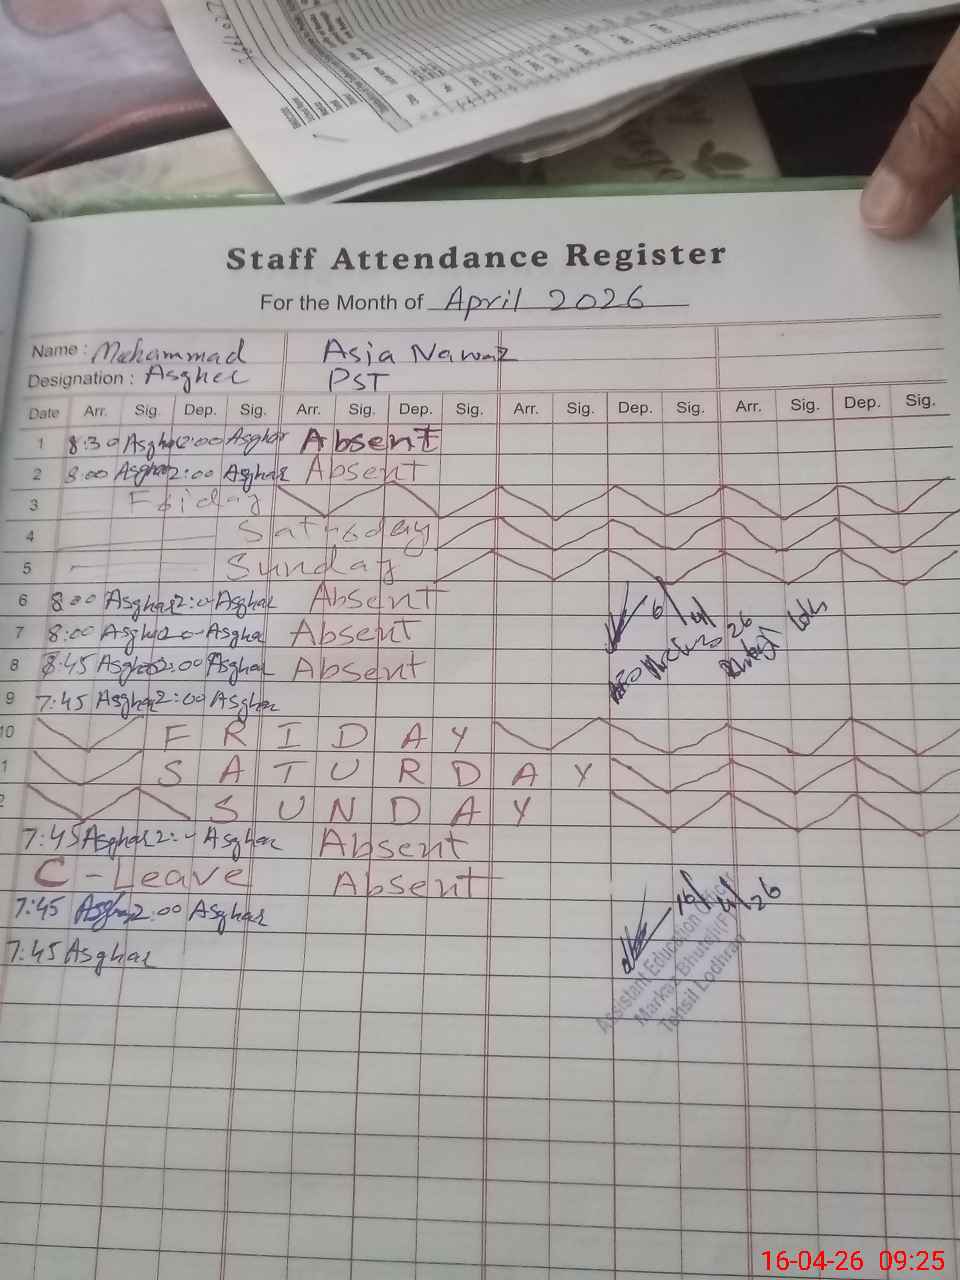 Staff Attendance Register
For the Month of April 2026
Name : Muhammad Asia Nawaz
Designation : Asghar PST
Date Arr. Sig. Dep. Sig. Arr. Sig. Dep. Sig. Arr. Sig. Dep. Sig. Arr. Sig. Dep. Sig.
1 8:30 Asghar 2:00 Asghar Absent
2 8:00 Asghar 2:00 Asghar Absent
3 Friday
4 Saturday
5 Sunday
6 8:00 Asghar 2:0 Asghar Absent
7 8:00 Asghar Asghar Absent
8 8:45 Asghar 2:00 Asghar Absent
9 7:45 Asghar 2:00 Asghar
6/4/26
10 FRIDAY
1 SATURDAY
2 SUNDAY
7:45 Asghar 2: Asghar Absent
C-Leave Absent
7:45 Asghar 2:00 Asghar
7:45 Asghar
16/4/26
Assistant Education Officer
Markaz
Tehsil Lodhran
16-04-26 09:25